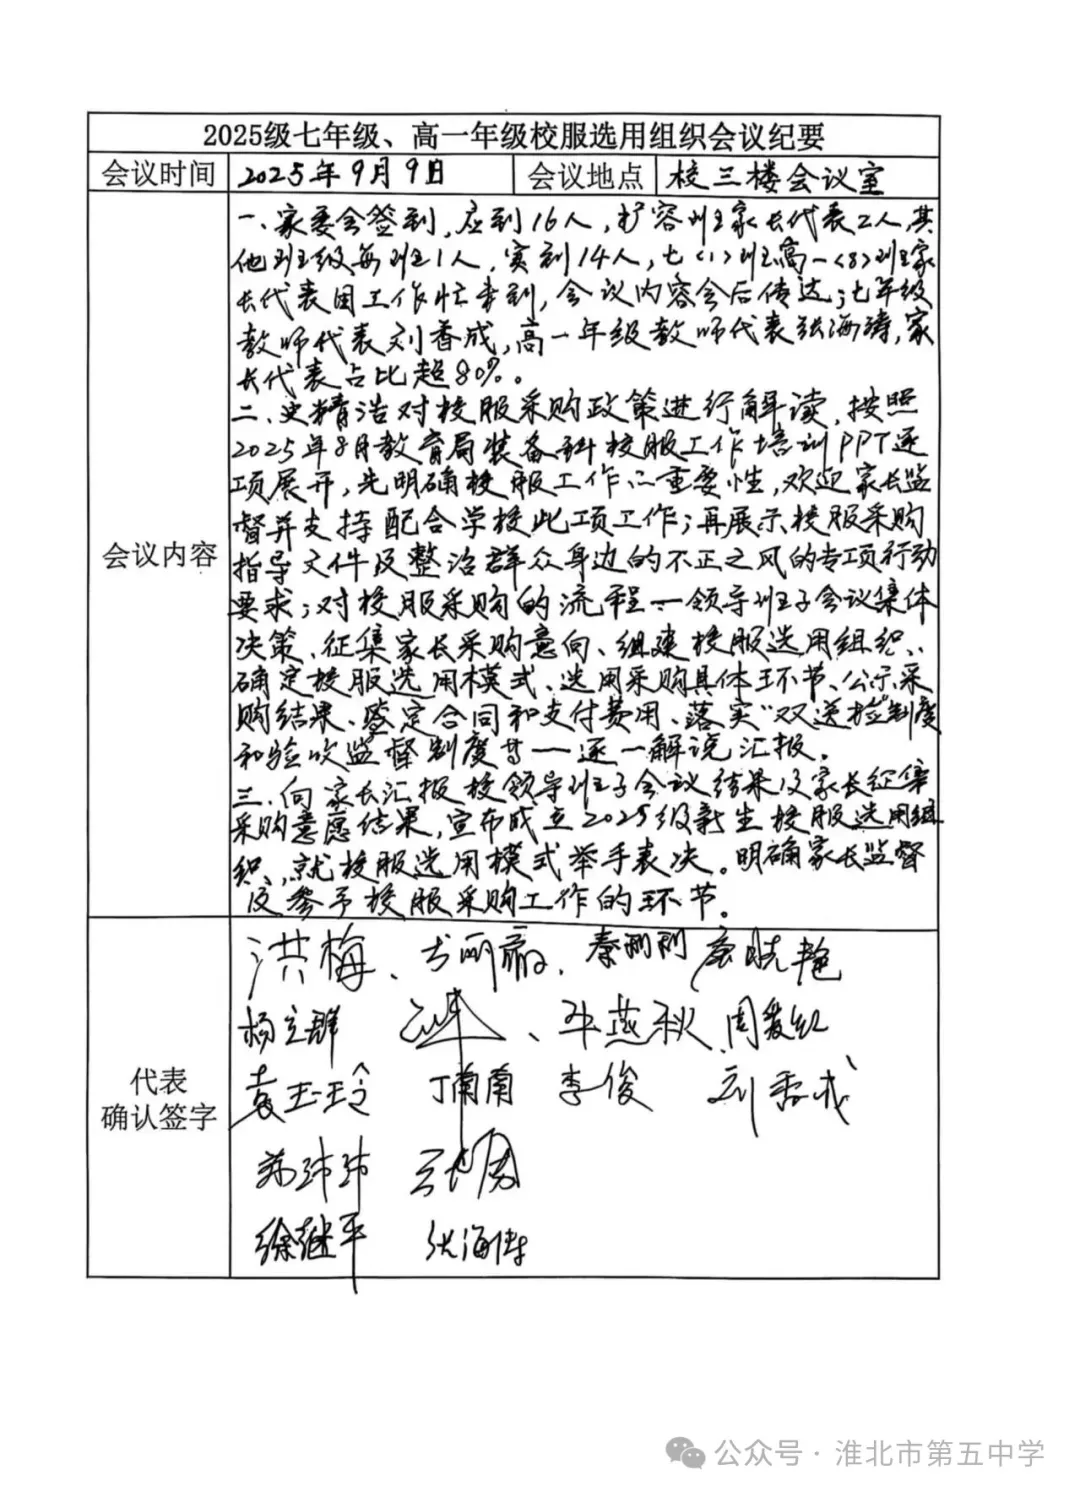 2025级七年级、高一年级校服选用组织会议纪要
会议时间 2025年9月9日 会议地点 校三楼会议室
会议内容
一、家委会签到,应到16人,扩容班家长代表2人,其
他班级每班1人,实到14人,七〈1〉班高一〈8〉班家
长代表因工作忙未到,会议内容会后传达;七年级
教师代表刘香成,高一年级教师代表张海涛,家
长代表占比超80%。
二、史精浩对校服采购政策进行解读,按照
2025年8月教育局装备科校服工作培训PPT逐
项展开,先明确校服工作重要性,欢迎家长监
督并支持配合学校此项工作;再展示校服采购
指导文件及整治群众身边的不正之风的专项行动
要求;对校服采购的流程—领导班子会议集体
决策、征集家长采购意向、组建校服选用组织、
确定校服选用模式、选用采购具体环节、公示采
购结果、鉴定合同和支付费用、落实“双送检”制度
和验收监督制度等—逐一解说汇报。
三、向家长汇报校领导班子会议结果及家长征集
采购意愿结果,宣布成立2025级新生校服选用组
织,就校服选用模式举手表决。明确家长监督
及参予校服采购工作的环节。
代表
确认签字
洪梅、秦 唐晓艳
杨立群 、燕秋 周爱红
袁玉玲 丁南南 李俊 刘香成
苏玮玮
徐继平 张海涛
公众号·淮北市第五中学